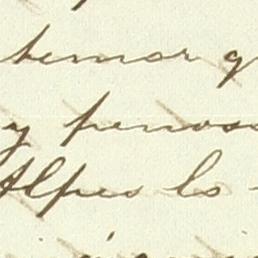 temor q
y penoso
Alpes lo